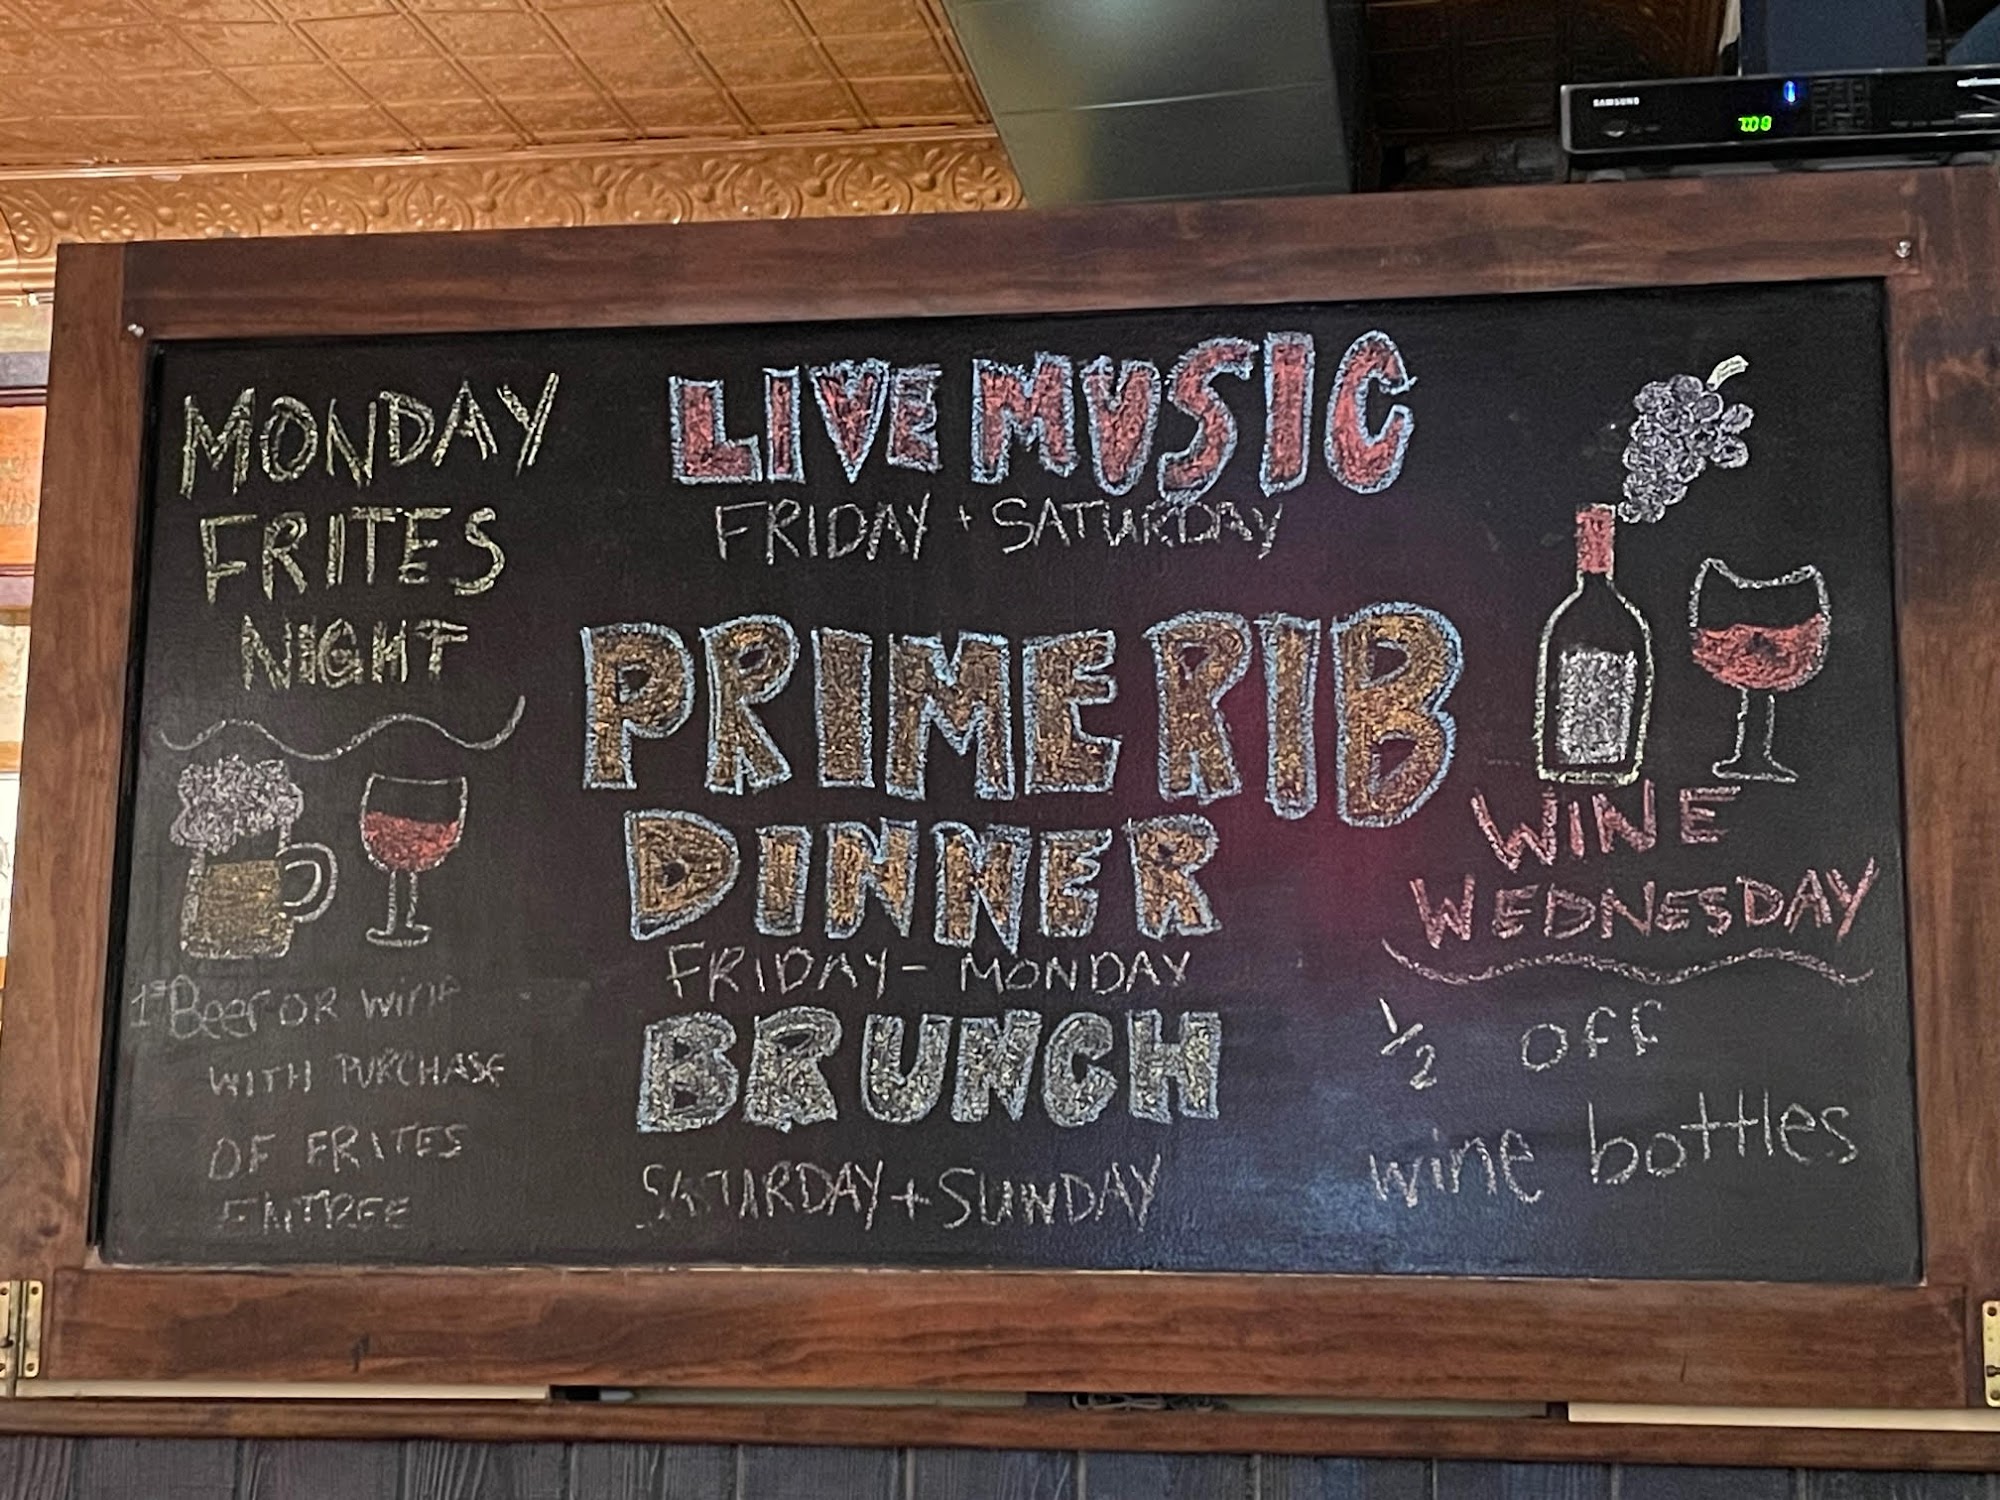 SAMSUNG
7:08
MONDAY
FRITES
NIGHT
Beer OR WINE
WITH PURCHASE
OF FRITES
ENTREE
LIVE MUSIC
FRIDAY + SATURDAY
PRIME RIB
DINNER
FRIDAY - MONDAY
BRUNCH
SATURDAY + SUNDAY
WINE
WEDNESDAY
1/2 OFF
wine bottles